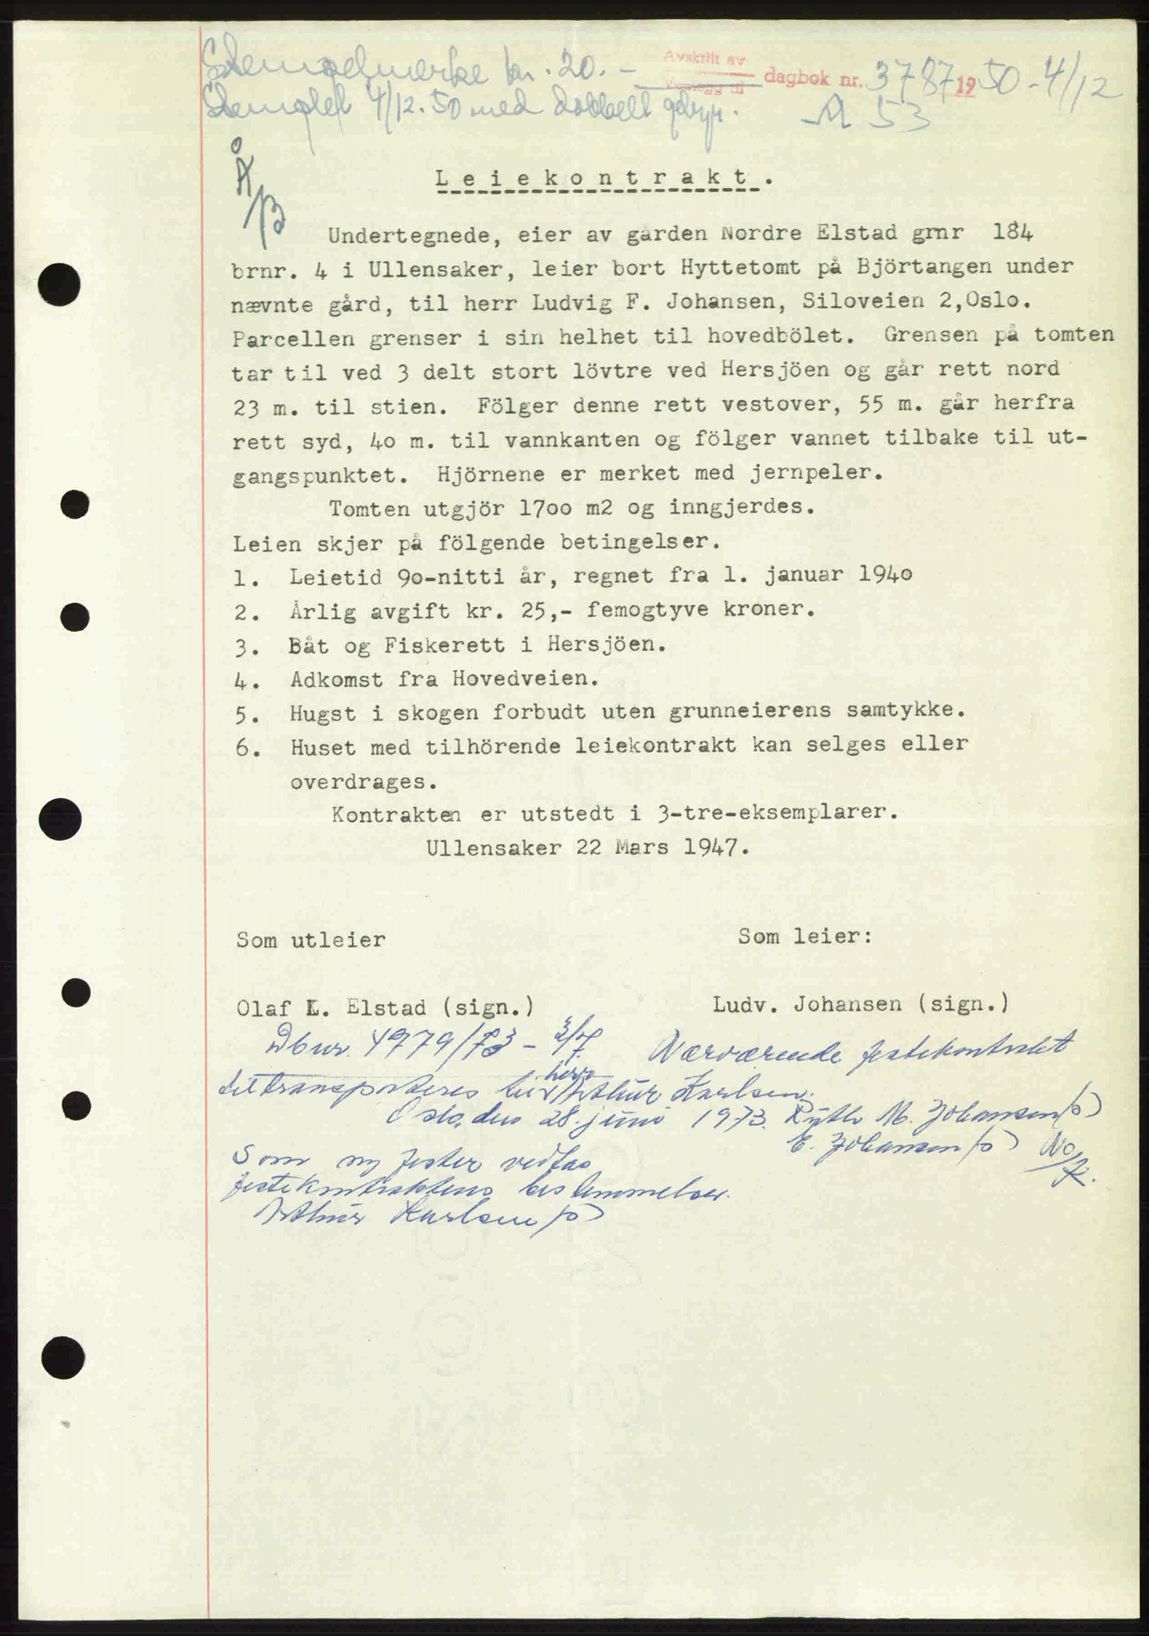 Stempelmerke kr. 20.-
Avskrift av
dagbok nr. 3787 1950-4/12
Stemplet 4/12-50 med dobbelt gebyr.
A 53
Å/B
Leiekontrakt.
Undertegnede, eier av gården Nordre Elstad gmr 184
brnr. 4 i Ullensaker, leier bort Hyttetomt på Björtangen under
nævnte gård, til herr Ludvig F. Johansen, Siloveien 2,Oslo.
Parcellen grenser i sin helhet til hovedbölet. Grensen på tomten
tar til ved 3 delt stort lövtre ved Hersjöen og går rett nord
23 m. til stien. Fölger denne rett vestover, 55 m. går herfra
rett syd, 4o m. til vannkanten og fölger vannet tilbake til ut-
gangspunktet. Hjörnene er merket med jernpeler.
Tomten utgjör 17oo m2 og inngjerdes.
Leien skjer på fölgende betingelser.
1. Leietid 9o-nitti år, regnet fra 1. januar 194o
2. Årlig avgift kr. 25,- femogtyve kroner.
3. Båt og Fiskerett i Hersjöen.
4. Adkomst fra Hovedveien.
5. Hugst i skogen forbudt uten grunneierens samtykke.
6. Huset med tilhörende leiekontrakt kan selges eller
overdrages.
Kontrakten er utstedt i 3-tre-eksemplarer.
Ullensaker 22 Mars 1947.
Som utleier
Som leier:
Olaf L. Elstad (sign.)
Ludv. Johansen (sign.)
Dbnr. 4979/73 - 3/7
Nærværende festekontrakt
transporteres til herr Arthur Karlsen.
Oslo, den 28. juni 1973. Ruth M. Johansen (s)
E. Johansen (s)
Som ny fester vedtas
festekontraktens bestemmelser.
Arthur Karlsen (s)